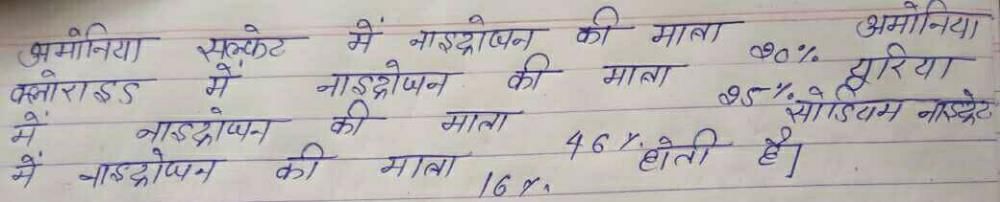 अमोनिया सल्फेट में नाइट्रोजन की मात्रा २०% अमोनिया
क्लोराइड में नाइट्रोजन की मात्रा २५% यूरिया
में नाइट्रोजन की मात्रा 46% सोडियम नाइट्रेट
में नाइट्रोजन की मात्रा 16% होती है।